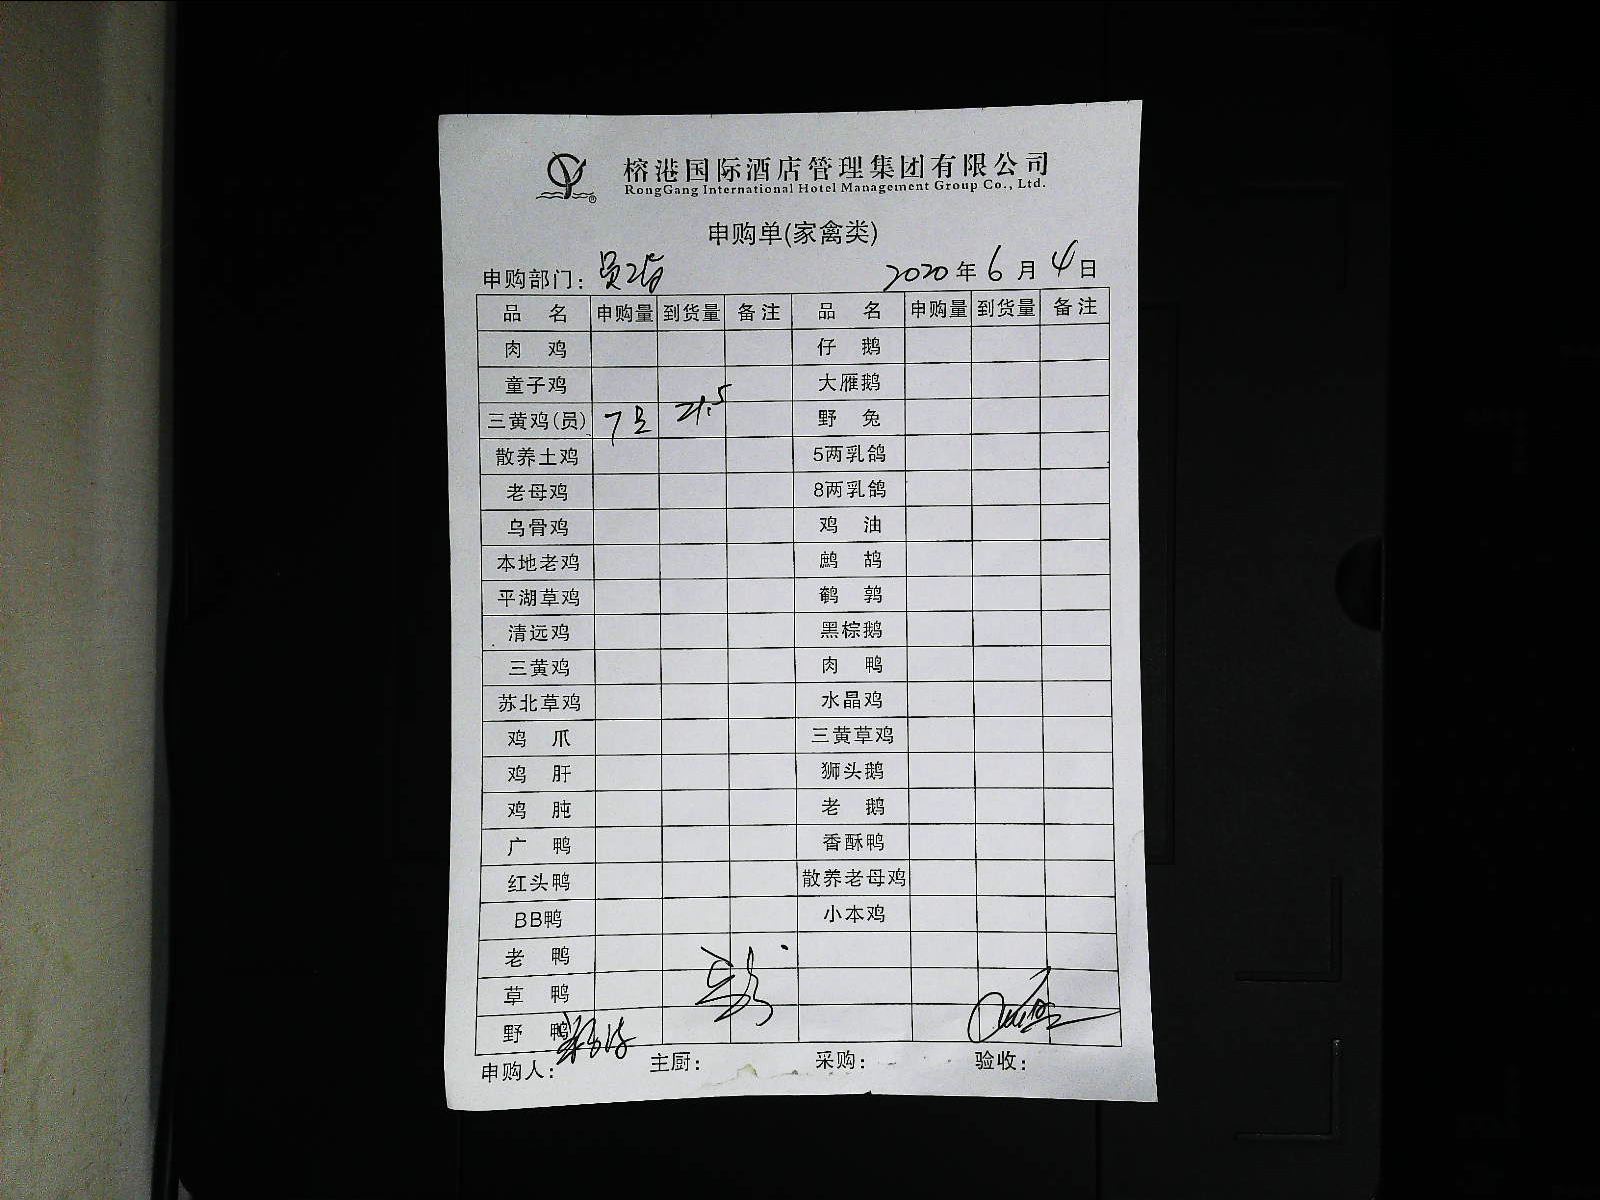 榕港国际酒店管理集团有限公司
RongGang International Hotel Management Group Co., Ltd.
®
申购单(家禽类)
申购部门：员 2020年6月4日
品 名 申购量 到货量 备注 品 名 申购量 到货量 备注
肉 鸡 仔 鹅
童子鸡 大雁鹅
三黄鸡(员) 7只 21.5 野 兔
散养土鸡 5两乳鸽
老母鸡 8两乳鸽
乌骨鸡 鸡 油
本地老鸡 鹧 鸪
平湖草鸡 鹌 鹑
清远鸡 黑棕鹅
三黄鸡 肉 鸭
苏北草鸡 水晶鸡
鸡 爪 三黄草鸡
鸡 肝 狮头鹅
鸡 肫 老 鹅
广 鸭 香酥鸭
红头鸭 散养老母鸡
BB鸭 小本鸡
老 鸭
草 鸭
野 鸭
申购人： 主厨： 采购： 验收：